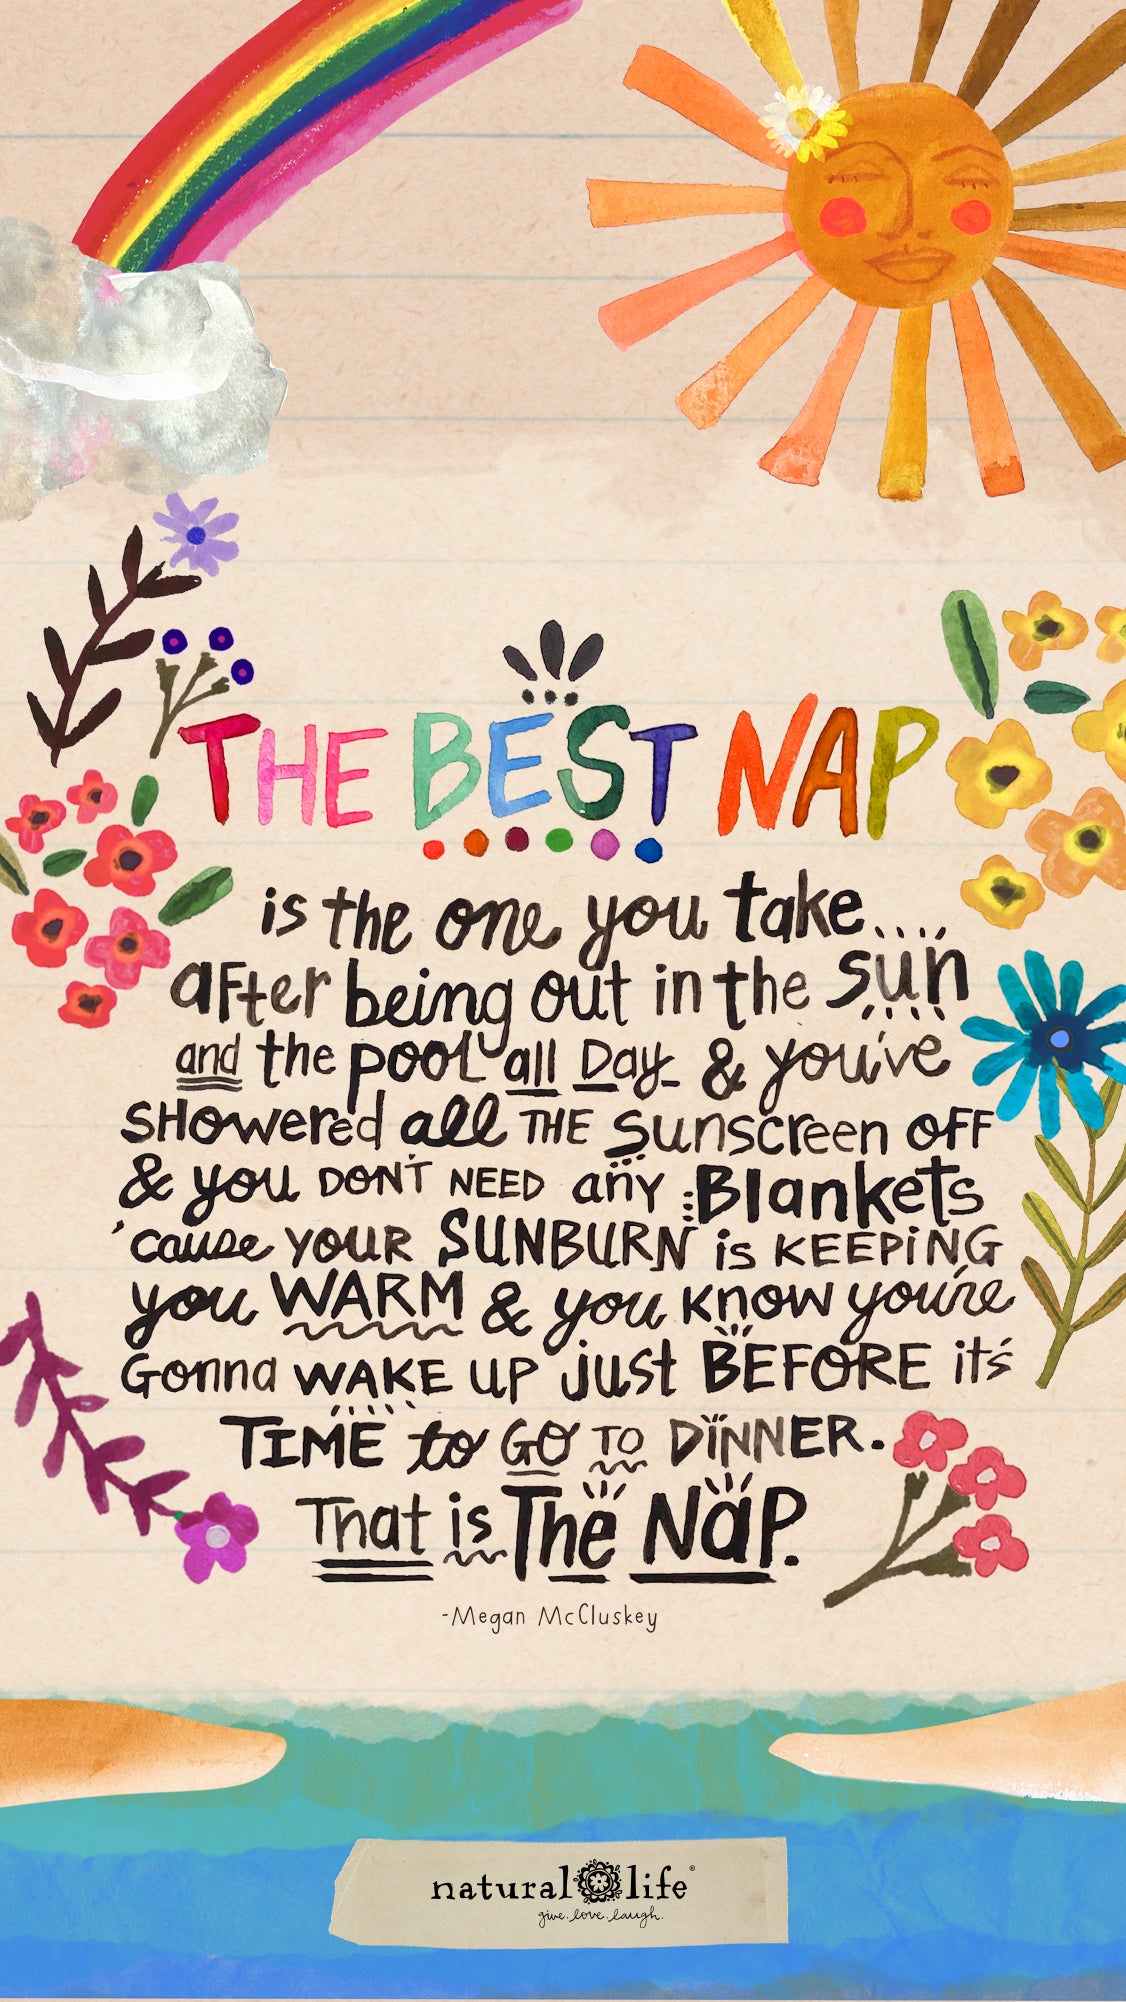 THE BEST NAP
is the one you take....
after being out in the sun
and the pool all Day & you've
SHowered all THE Sunscreen OFF
& you DON'T NEED any Blankets
'cause YOUR SUNBURN is KEEPiNG
you WARM & you know you're
Gonna WAKE UP just BEFORE it's
TIME to GO TO DiNNER.
That is The NaP.
-Megan McCluskey
natural life®
give.love.laugh.